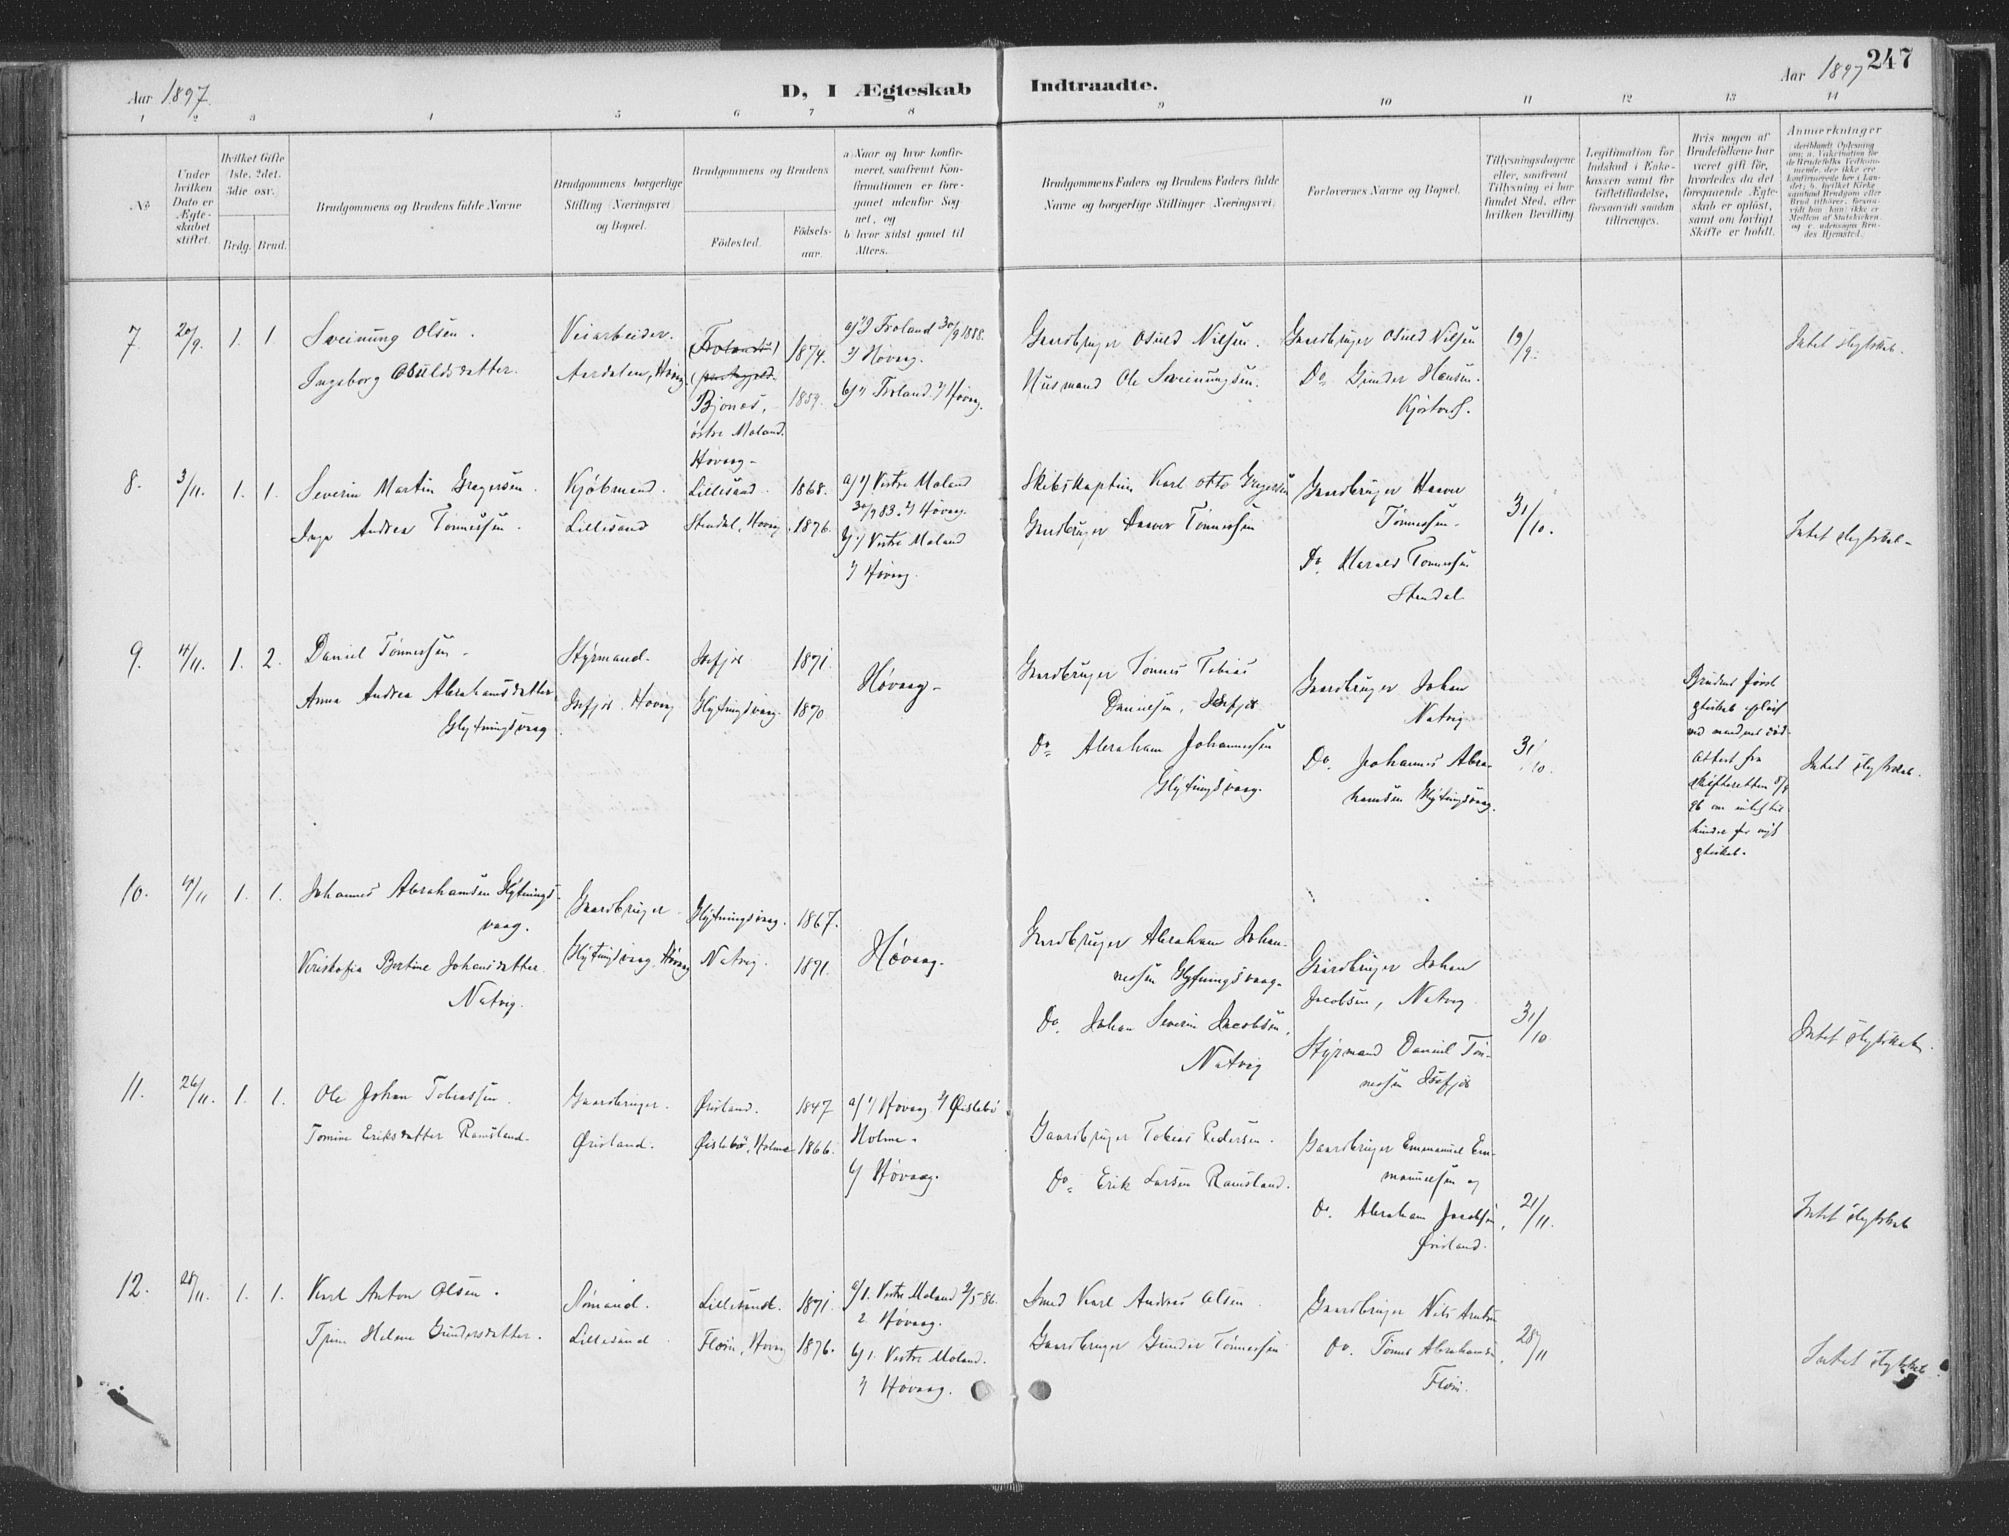 247
Aar 1897.
D, I Ægteskab Indtraadte.
Aar 1897
1 2 3 4 5 6 7 8 9 10 11 12 13 14
No
Under hvilken Dato er Ægteskabet stiftet.
Hvilket Gifte 1ste, 2det, 3die osv.
Brdg. Brud.
Brudgommens og Brudens fulde Navne
Brudgommens borgerlige Stilling (Næringsvei) og Bopæl.
Brudgommens og Brudens
Fødested.
Fødsels-aar.
a) Naar og hvor konfirmeret, saafremt Konfirmationen er foregaaet udenfor Sognet, og
b) hvor sidst gaaet til Alters.
Brudgommens Faders og Brudens Faders fulde Navne og borgerlige Stillinger (Næringsvei)
Forlovernes Navne og Bopæl.
Tillysningsdagene eller, saafremt Tillysning ei har fundet Sted, efter hvilken Bevilling
Legitimation for Indskud i Enkekassen samt for Giftefledførelse, forsaavidt saadan tiltrænges.
Hvis nogen af Brudefolkene har været gift før, hvorledes da det foregaaende Ægteskab er opløst, samt om lovligt Skifte er holdt.
Anmerkninger
7. 20/9. 1. 1
Sveinung Olsen.
Ingeborg Osuldsdatter.
Veiarbeider.
Aardalen, Høvåg
Bjones,
østre Moland.
Høvaag -
1874.
1859.
a) 1) Froland 30/9 1888.
2) Høvaag.
b) 1) Froland. 2) Høvaag.
Gaardbruger Osuld Nilsen.
Husmand Ole Sveinungsen.
Gaardbruger Osuld Nilsen
Do Gunder Hansen.
19/9.
Intet slegtskab.
8. 3/11. 1. 1.
Severin Martin Gregersen.
Inga Andrea Tønnessen.
Kjøbmand.
Lillesand
Lillesand.
Stendal, Høvag
1868.
1876.
a) 1) Vestre Moland
30/9 83. 2) Høvag.
b) 1) Vestre Moland
2) Høvag.
Skibskaptein Karl Otto Gregersen
Gaardbruger Haaver Tønnessen
Gaardbruger Haaver
Tønnessen.
Do. Harald Tønnessen
Stendal
31/10.
Intet slegtskab -
9. 4/11. 1. 2.
Daniel Tønnessen.
Anna Andrea Abrahamsdatter
Glytningsvaag
Styrmand.
Isefjær. Høvag
Isefjær
Glytningsvaag.
1871.
1870
Høvaag -
Gaardbruger Tønnes Tobias
Danielsen, Isefjær
Do Abraham Johannessen
Glytningsvaag.
Gaardbruger Johan
Natvig
Do. Johannes Abra-
hamsen Glytningsvaag.
31/10.
Brudens først
ægteskab opløst
ved mandens død.
Attest fra
skifteretten 5/9
96 om intet til
hinder for nyt
ægteskab.
Intet slegtskab.
10. 4/11 1. 1.
Johannes Abrahamsen Glytnings-
vaag.
Kristofia Bertine Johansdatter
Natvig.
Gaardbruger
Glytningsvaag, Høvag
Glytningsvaag.
Natvig.
1867.
1871.
Høvaag.
Gaardbruger Abraham Johan-
nessen Glytningsvaag.
Do. Johan Severin Jacobsen,
Natvig
Gaardbruger Johan
Jacobsen, Natvig
Styrmand Daniel Tøn-
nessen Isefjær
31/10
Intet slegtskab.
11. 26/11. 1. 1.
Ole Johan Tobiassen.
Tomine Eriksdatter Ramsland.
Gaardbruger.
Øvisland.
Øvisland.
Øislebø, Holme
1847
1866.
a) 1) Høvaag. 2) Øislebø
Holme.
b) Høvaag.
Gaardbruger Tobias Pedersen.
Do. Erik Larsen Ramsland.
Gaardbruger Emmanuel Em-
manuelsen og
Do. Abraham Jacobsen
Øvisland.
21/11.
Intet slegtskab
12. 28/11. 1. 1.
Karl Anton Olsen.
Helene Gundersdatter.
Sømand.
Lillesand
Lillesand.
Høvag
1871.
1876.
a) 1. Vestre Moland 2/5 86.
2. Høvaag.
b) 1. Vestre Moland.
2) Høvaag.
Smed Karl Andreas Olsen
Gaardbruger Gunder Tønnessen
Gaardbruger Nils
Do. Tønnes Abrahamsen
28/11
Intet slegtskab